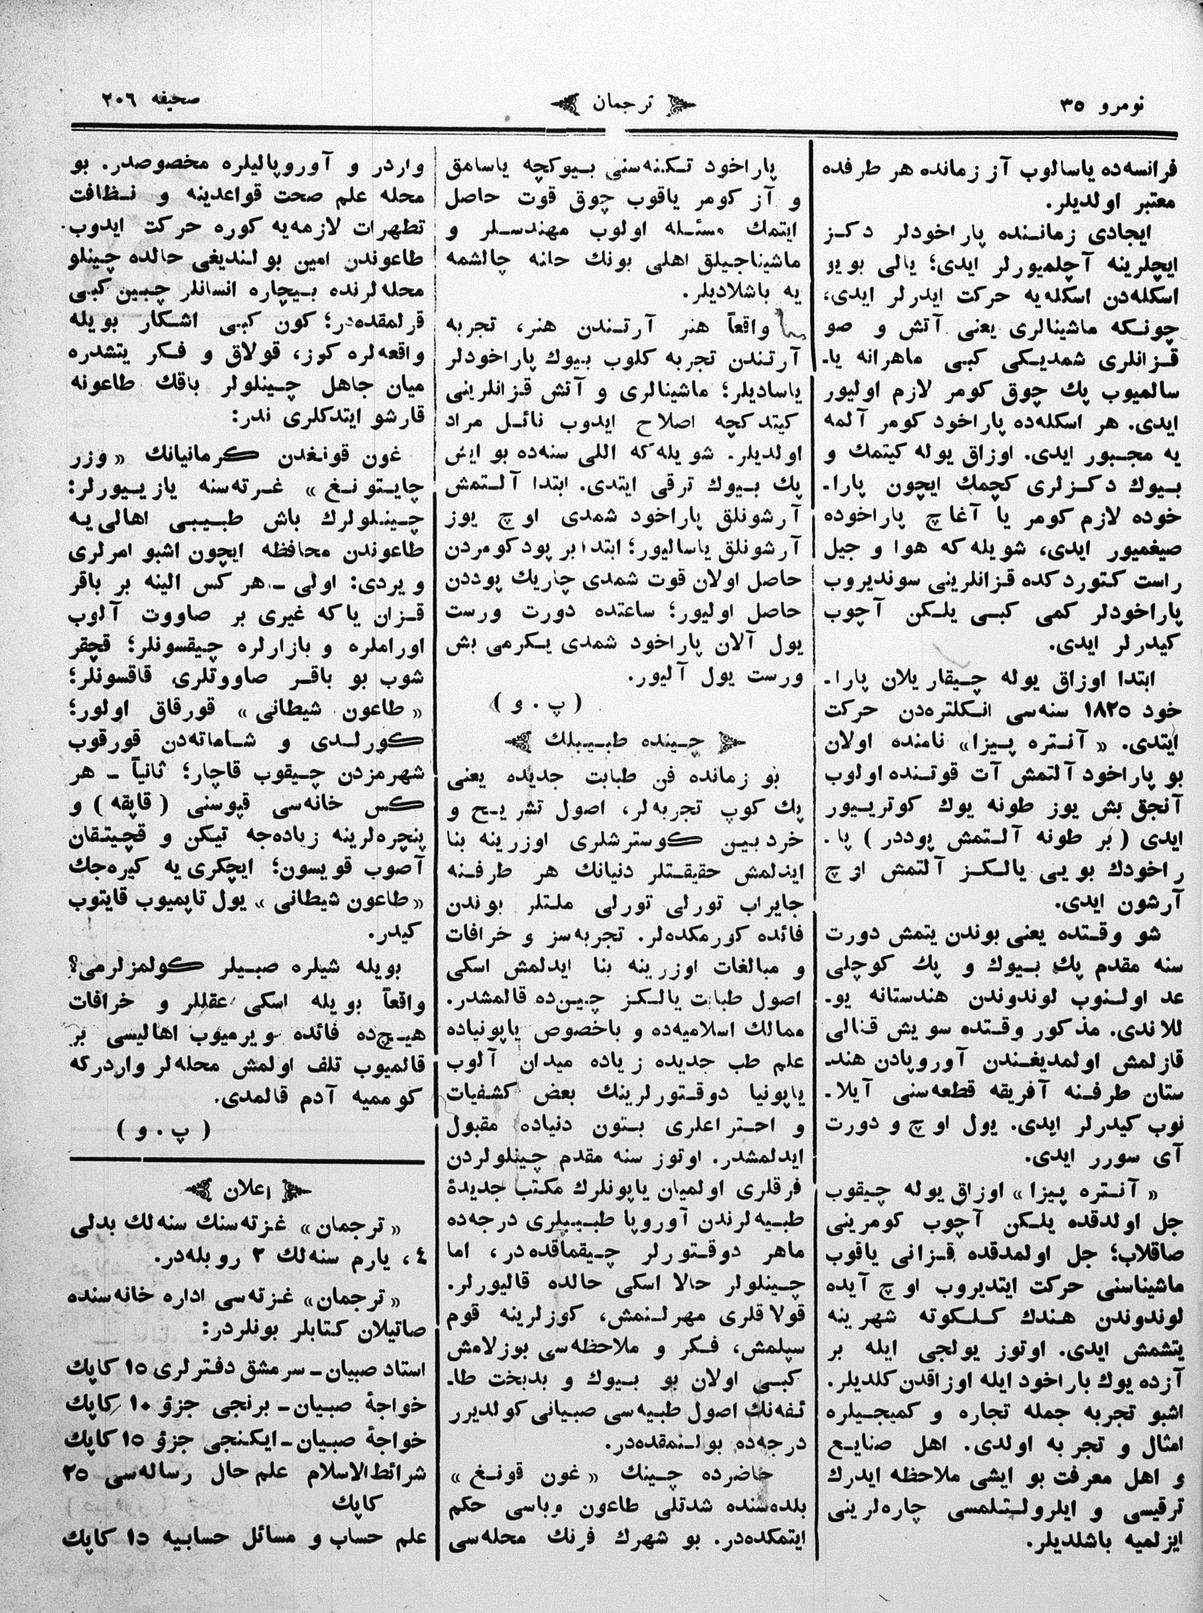 نومرو ٣٥
ترجمان
صحيفه ٢٠٦
فرانسه‌ده ياسالوب آز زمانده هر طرفده
معتبر اولديلر.
ايجادى زماننده پاراخودلر دكز
ايچلرينه آچلميورلر ايدى؛ يالى بويو
اسكله‌دن اسكله‌يه حركت ايدرلر ايدى،
چونكه ماشينالرى يعنى آتش و صو
قزانلرى شمديكى كبى ماهرانه يا-
سالميوب پك چوق كومر لازم اوليور
ايدى. هر اسكله‌ده پاراخود كومر آلمه
يه مجبور ايدى. اوزاق يوله كيتمك و
بيوك دكزلرى كچمك ايچون پارا-
خوده لازم كومر يا آغاچ پاراخوده
صيغميور ايدى، شويله كه هوا و جيل
راست كتوردكده قزانلرينى سونديروب
پاراخودلر كمى كبى يلكن آچوب
كيدرلر ايدى.
ابتدا اوزاق يوله چيقاريلان پارا-
خود ١٨٢٥ سنه‌سى انكلتره‌دن حركت
ايتدى. « آنتره پيزا» نامنده اولان
بو پاراخود آلتمش آت قوتنده اولوب
آنجق بش يوز طونه يوك كوتريیور
ايدى ( بر طونه آلتمش پوددر ) پا-
راخودك بويى يالكز آلتمش اوچ
آرشون ايدى.
شو وقتده يعنى بوندن يتمش دورت
سنه مقدم پك بيوك و پك كوچلى
عد اولنوب لوندوندن هندستانه يو-
للاندى. مذكور وقتده سويش قنالى
قازلمش اولمديغندن آوروپادن هند-
ستان طرفنه آفريقه قطعه‌سنى آيلا-
نوب كيدرلر ايدى. يول اوچ و دورت
آى سورر ايدى.
« آنتره پيزا» اوزاق يوله چيقوب
جل اولدقده يلكن آچوب كومرينى
صاقلاب؛ جل اولمدقده قزانى ياقوب
ماشيناسنى حركت ايتديروب اوچ آيده
لوندوندن هندك كلكوته شهرينه
يتشمش ايدى. اوتوز يولجى ايله بر
آزده يوك پاراخود ايله اوزاقدن كلديلر.
اشبو تجربه جمله تجاره و كميجيلره
امثال و تجربه اولدى. اهل صنايع
و اهل معرفت بو ايشى ملاحظه ايدرك
ترقيسى و ايلرولتلمسى چاره‌لرينى
ايزلميه باشلديلر.
پاراخود تكنه‌سنى بيوكچه ياسامق
و آز كومر ياقوب چوق قوت حاصل
ايتمك مسئله اولوب مهندسلر و
ماشيناجيلق اهلى بونك حانه چالشمه
يه باشلاديلر.
واقعاً هنر آرتندن هنر، تجربه
آرتندن تجربه كلوب بيوك پاراخودلر
ياساديلر؛ ماشينالرى و آتش قزانلرينى
كيتدكچه اصلاح ايدوب نائل مراد
اولديلر. شويله كه اللى سنه‌ده بو ايش
پك بيوك ترقى ايتدى. ابتدا آلتمش
آرشونلق پاراخود شمدى اوچ يوز
آرشونلق ياساليور؛ ابتدا بر پود كومردن
حاصل اولان قوت شمدى چاريك پوددن
حاصل اوليور؛ ساعتده دورت ورست
يول آلان پاراخود شمدى يكرمى بش
ورست يول آليور.
( پ. و )
چينده طبيبلك
بو زمانده فن طبابت جديده يعنى
پك كوپ تجربه‌لر، اصول تشريح و
خردبين كوسترشلرى اوزرينه بنا
ايدلمش حقيقتلر دنيانك هر طرفنه
جايراب تورلى تورلى ملتلر بوندن
فائده كورمكده‌لر. تجربه‌سز و خرافات
و مبالغات اوزرينه بنا ايدلمش اسكى
اصول طبابت يالكز چين‌ده قالمشدر.
ممالك اسلاميه‌ده و باخصوص ياپونياده
علم طب جديده زياده ميدان آلوب
ياپونيا دوقتورلرينك بعض كشفيات
و احتراعلرى بتون دنياده مقبول
ايدلمشدر. اوتوز سنه مقدم چينلولردن
فرقلرى اولميان ياپونلرك مكتب جديدۀ
طبيه‌لرندن آوروپا طبيبلرى درجه‌ده
ماهر دوقتورلر چيقماقده‌در، اما
چينلولر حالا اسكى حالده قاليورلر.
قولاقلرى مهرلنمش، كوزلرينه قوم
سپلمش، فكر و ملاحظه‌سى بوزلامش
كبى اولان بو بيوك و بدبخت طا-
ئفه‌نك اصول طبيه‌سى صبيانى كولديرر
درجه‌ده بولنمقده‌در.
حاضرده چينك « غون قونغ »
بلده‌سنده شدتلى طاعون وباسى حكم
ايتمكده‌در. بو شهرك فرنك محله‌سى
واردر و آوروپاليلره مخصوصدر. بو
محله علم صحت قواعدينه و نظافت
تطهرات لازمه‌يه كوره حركت ايدوب
طاعوندن امين بولنديغى حالده چينلو
محله‌لرنده بيچاره انسانلر چبين كبى
قرلمقده‌در؛ كون كبى اشكار بويله
واقعه‌لره كوز، قولاق و فكر يتشدره
ميان جاهل چينلولر باقك طاعونه
قارشو ايتدكلرى ندر:
غون قونغدن كرمانيانك « وزر
چايتونغ » غزته‌سنه يازييورلر:
چينلولرك باش طبيبى اهالى‌يه
طاعوندن محافظه ايچون اشبو امرلرى
ويردى: اولى - هر كس الينه بر باقر
قزان ياكه غيرى بر صاووت آلوب
اوراملره و بازارلره چيقسونلر؛ قچقر
شوب بو باقر صاووتلرى قاقسونلر؛
« طاعون شيطانى » قورقاق اولور؛
كورلدى و شاماته‌دن قورقوب
شهرمزدن چيقوب قاچار؛ ثانياً - هر
كس خانه‌سى قپوسنى ( قاپقه ) و
پنچره‌لرينه زياده‌جه تيكن و قچيتقان
آصوب قويسون؛ ايچكرى يه كيره‌جك
« طاعون شيطانى » يول تاپميوب قايتوب
كيدر.
بويله شيلره صبيلر كولمزلرمى؟
واقعاً بويله اسكى عقللر و خرافات
هيچ‌ده فائده ويرميوب اهاليسى بر
قالميوب تلف اولمش محله‌لر واردركه
كومميه آدم قالمدى.
( پ. و )
اعلان
« ترجمان» غزته‌سنك سنه‌لك بدلى
٤، يارم سنه‌لك ٢ روبله‌در.
« ترجمان» غزته‌سى اداره خانه‌سنده
صاتيلان كتابلر بونلردر:
استاد صبيان - سرمشق دفترلرى ١٥ كاپك
خواجۀ صبيان - برنجى جزؤ ١٠ كاپك
خواجۀ صبيان - ايكنجى جزؤ ١٥ كاپك
شرائط الاسلام علم حال رساله‌سى ٢٥
كاپك
علم حساب و مسائل حسابيه ١٥ كاپك